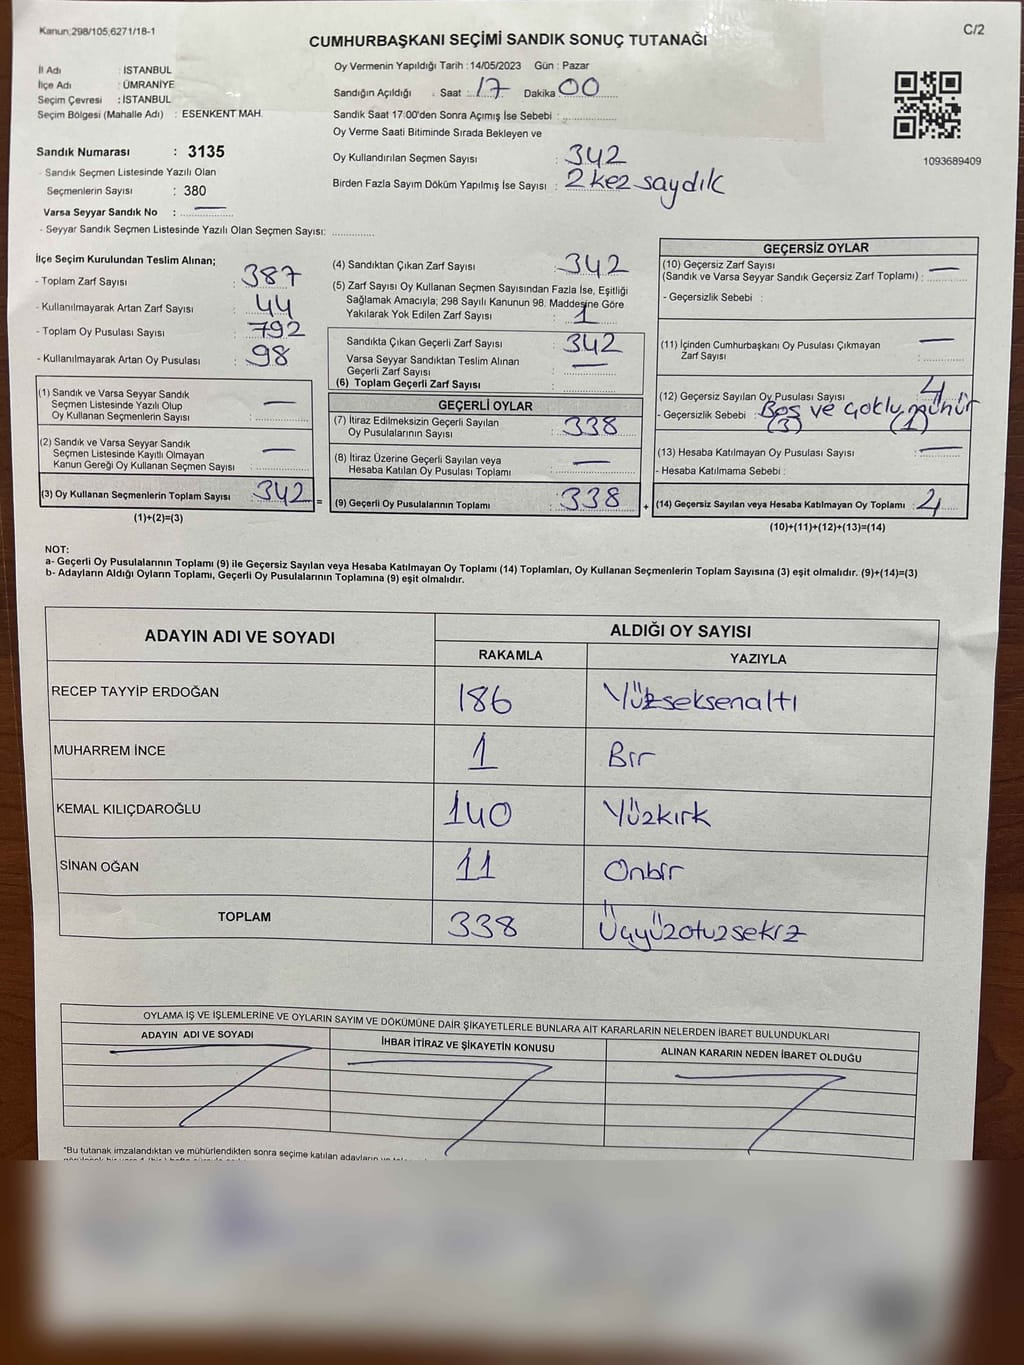 Kanun;298/105,6271/18-1
C/2
CUMHURBAŞKANI SEÇİMİ SANDIK SONUÇ TUTANAĞI
İl Adı : İSTANBUL
İlçe Adı : ÜMRANİYE
Seçim Çevresi : İSTANBUL
Seçim Bölgesi (Mahalle Adı) : ESENKENT MAH.
Sandık Numarası : 3135
- Sandık Seçmen Listesinde Yazılı Olan
Seçmenlerin Sayısı : 380
Varsa Seyyar Sandık No : —
- Seyyar Sandık Seçmen Listesinde Yazılı Olan Seçmen Sayısı: ..............
Oy Vermenin Yapıldığı Tarih : 14/05/2023 Gün : Pazar
Sandığın Açıldığı . Saat : 17 Dakika 00
Sandık Saat 17:00'den Sonra Açımış İse Sebebi : ..............
Oy Verme Saati Bitiminde Sırada Bekleyen ve
Oy Kullandırılan Seçmen Sayısı : 342
Birden Fazla Sayım Döküm Yapılmış İse Sayısı : 2 kez saydık
1093689409
İlçe Seçim Kurulundan Teslim Alınan;
- Toplam Zarf Sayısı : 387
- Kullanılmayarak Artan Zarf Sayısı : 44
- Toplam Oy Pusulası Sayısı : 792
- Kullanılmayarak Artan Oy Pusulası : 98
(1) Sandık ve Varsa Seyyar Sandık
Seçmen Listesinde Yazılı Olup
Oy Kullanan Seçmenlerin Sayısı : —
(2) Sandık ve Varsa Seyyar Sandık
Seçmen Listesinde Kayıtlı Olmayan
Kanun Gereği Oy Kullanan Seçmen Sayısı : —
(3) Oy Kullanan Seçmenlerin Toplam Sayısı 342 =
(1)+(2)=(3)
(4) Sandıktan Çıkan Zarf Sayısı : 342
(5) Zarf Sayısı Oy Kullanan Seçmen Sayısından Fazla İse, Eşitliği
Sağlamak Amacıyla; 298 Sayılı Kanunun 98. Maddesine Göre
Yakılarak Yok Edilen Zarf Sayısı : 1
Sandıkta Çıkan Geçerli Zarf Sayısı : 342
Varsa Seyyar Sandıktan Teslim Alınan
Geçerli Zarf Sayısı : —
(6) Toplam Geçerli Zarf Sayısı : ..............
GEÇERLİ OYLAR
(7) İtiraz Edilmeksizin Geçerli Sayılan
Oy Pusulalarının Sayısı : 338
(8) İtiraz Üzerine Geçerli Sayılan veya
Hesaba Katılan Oy Pusulası Toplamı : —
(9) Geçerli Oy Pusulalarının Toplamı : 338 +
GEÇERSİZ OYLAR
(10) Geçersiz Zarf Sayısı
(Sandık ve Varsa Seyyar Sandık Geçersiz Zarf Toplamı) : —
- Geçersizlik Sebebi :
(11) İçinden Cumhurbaşkanı Oy Pusulası Çıkmayan
Zarf Sayısı : —
(12) Geçersiz Sayılan Oy Pusulası Sayısı : 4
- Geçersizlik Sebebi : Boş ve çoklu mühür
(3) (1)
(13) Hesaba Katılmayan Oy Pusulası Sayısı : —
- Hesaba Katılmama Sebebi :
(14) Geçersiz Sayılan veya Hesaba Katılmayan Oy Toplamı : 4
(10)+(11)+(12)+(13)=(14)
NOT:
a- Geçerli Oy Pusulalarının Toplamı (9) ile Geçersiz Sayılan veya Hesaba Katılmayan Oy Toplamı (14) Toplamları, Oy Kullanan Seçmenlerin Toplam Sayısına (3) eşit olmalıdır. (9)+(14)=(3)
b- Adayların Aldığı Oyların Toplamı, Geçerli Oy Pusulalarının Toplamına (9) eşit olmalıdır.
ADAYIN ADI VE SOYADI ALDIĞI OY SAYISI
RAKAMLA YAZIYLA
RECEP TAYYİP ERDOĞAN 186 Yüzseksenaltı
MUHARREM İNCE 1 Bir
KEMAL KILIÇDAROĞLU 140 Yüzkırk
SİNAN OĞAN 11 Onbir
TOPLAM 338 Üçyüzotuzsekiz
OYLAMA İŞ VE İŞLEMLERİNE VE OYLARIN SAYIM VE DÖKÜMÜNE DAİR ŞİKAYETLERLE BUNLARA AİT KARARLARIN NELERDEN İBARET BULUNDUKLARI
ADAYIN ADI VE SOYADI İHBAR İTİRAZ VE ŞİKAYETİN KONUSU ALINAN KARARIN NEDEN İBARET OLDUĞU
*Bu tutanak imzalandıktan ve mühürlendikten sonra seçime katılan adayların